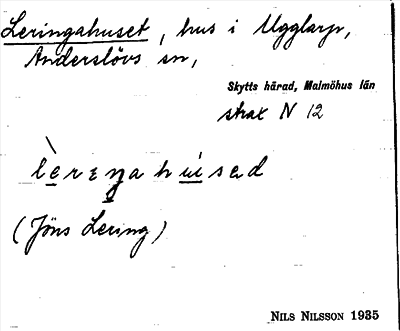 Leringahuset, hus i Ugglarp,
Anderslövs sn,
Skytts härad, Malmöhus län
strax N 12
lèreŋahúsad
(Jöns Lering)
NILS NILSSON 1935